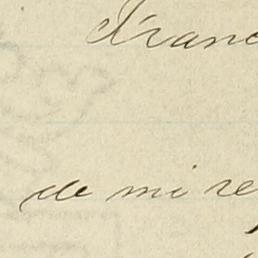 Franc
de mi re